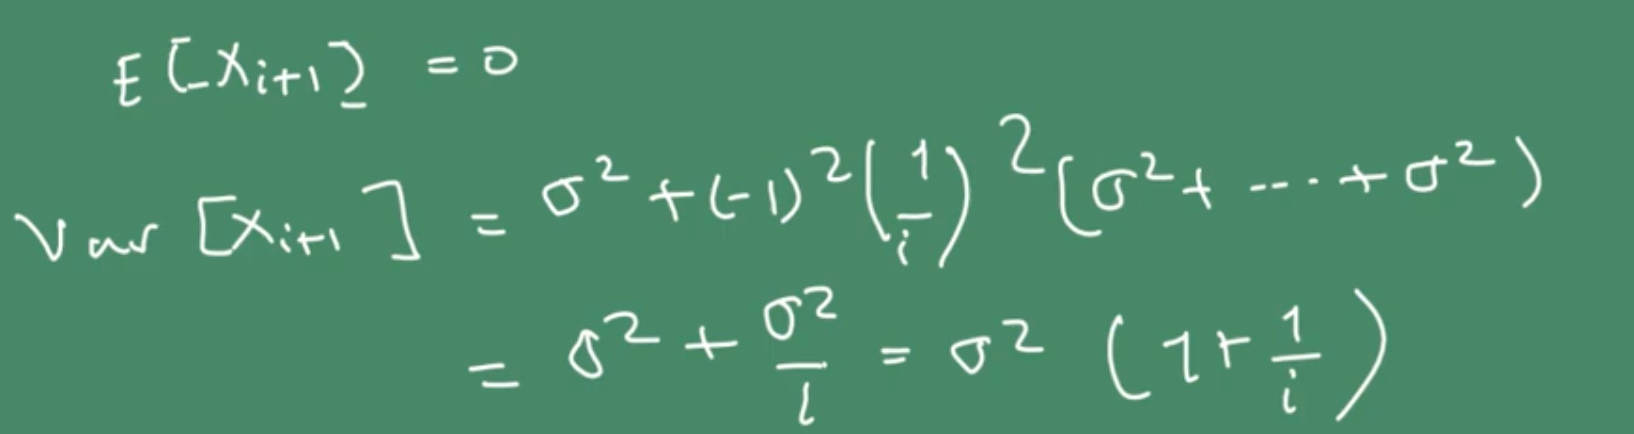 E[X_{i+1}] = 0
Var [X_{i+1}] = σ² + (-1)² (1/i)² (σ² + ---· + σ²)
= σ² + σ²/i = σ² (1 + 1/i)